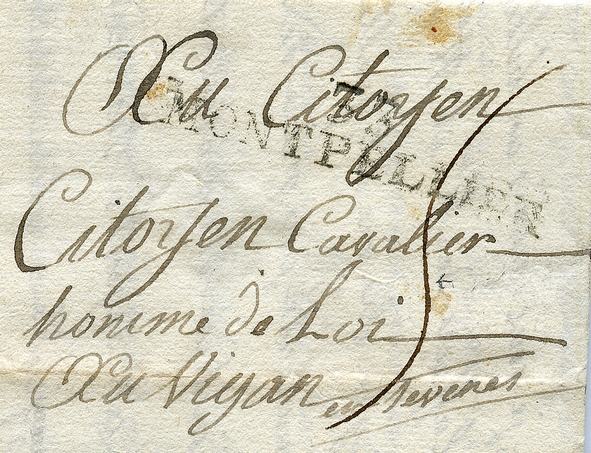 Au Citoyen
MONTPELLIER
Citoyen Cavalier
homme de Loi
Au Vigan en Sevenes